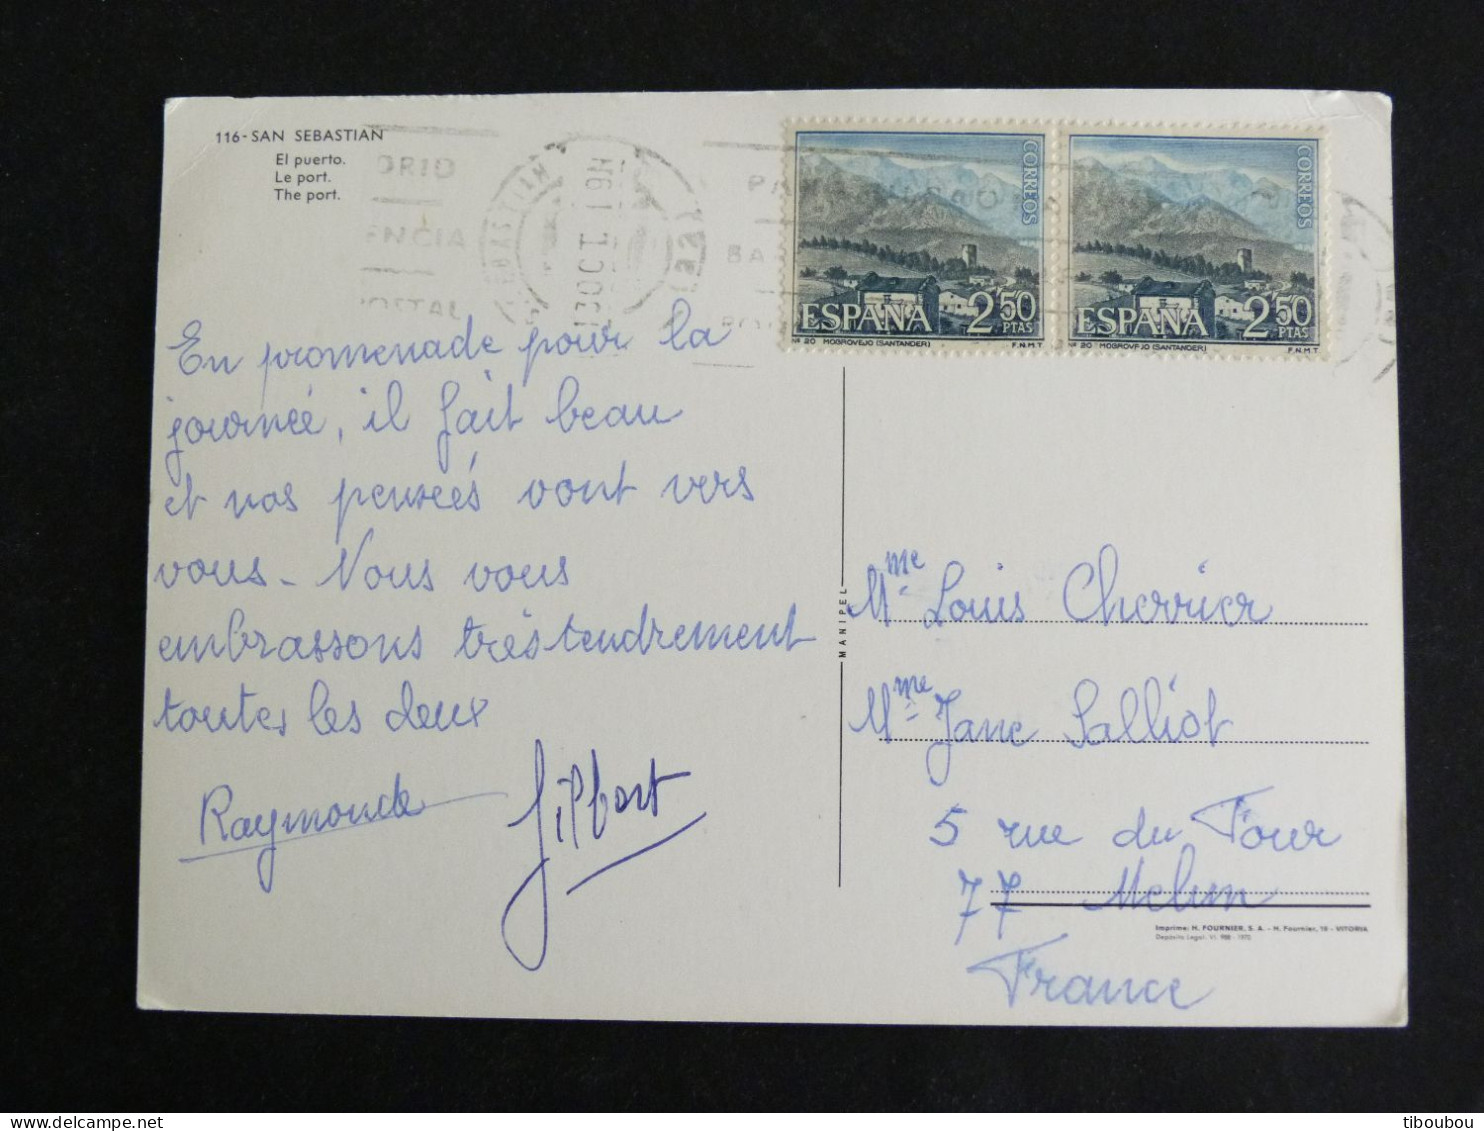 116-SAN SEBASTIAN
El puerto.
Le port.
The port.
SEBASTIAN
13 OCT. 19H
CORREOS
ESPAÑA 2'50 PTAS
Nº 20 MOGROVEJO (SANTANDER) F.N.M.T
CORREOS
ESPAÑA 2'50 PTAS
Nº 20 MOGROVEJO (SANTANDER) F.N.M.T
En promenade pour la
journée, il fait beau
et nos pensées vont vers
vous - Nous vous
embrassons très tendrement
toutes les deux
Raymonde Gilbert
MANIPEL
Mme Louis Cherrier
Mme Jane Salliot
5 rue du Four
77 Melun
France
Imprime: H. FOURNIER, S. A. - H. Fournier, 19 - VITORIA
Depósito Legal: VI. 988 - 1970
tiboubou